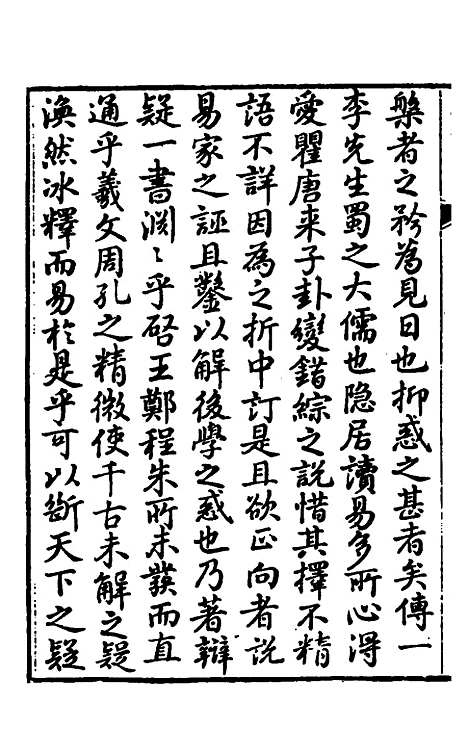 槃者之矜為見日也抑惑之甚者矣傳一
李先生蜀之大儒也隐居讀易多所心得
愛瞿唐来子卦變錯綜之說惜其擇不精
語不詳因為之折中訂是且欲正向者說
易家之誣且鑿以解後學之惑也乃著辯
疑一書渊〻乎啓王鄭程朱所未發而直
通乎羲文周孔之精微使千古未解之疑
渙然冰釋而易於是乎可以斷天下之疑